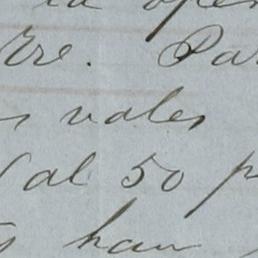 la ope
Ere. Pa
s vales
al 50 p
s han